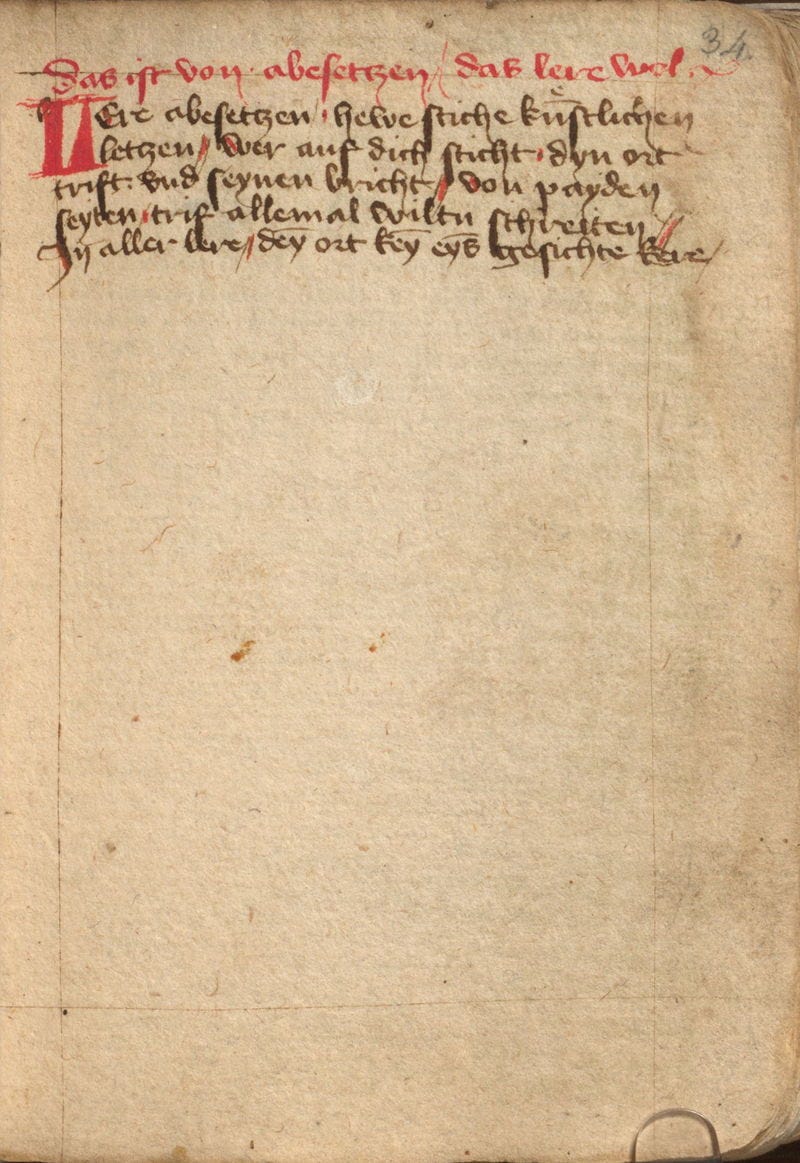 34
Das ist von abesetczen / das lere wol
LEre abesetczen · hewe stiche kůnstlichen
letczen / Wer auf dich sticht · dyn ort
trift · vnd seynen bricht / von payden
seyten · trif allemal wiltu schreiten //
In aller lere // deȳ ort keȳ eȳs gesichte kere /